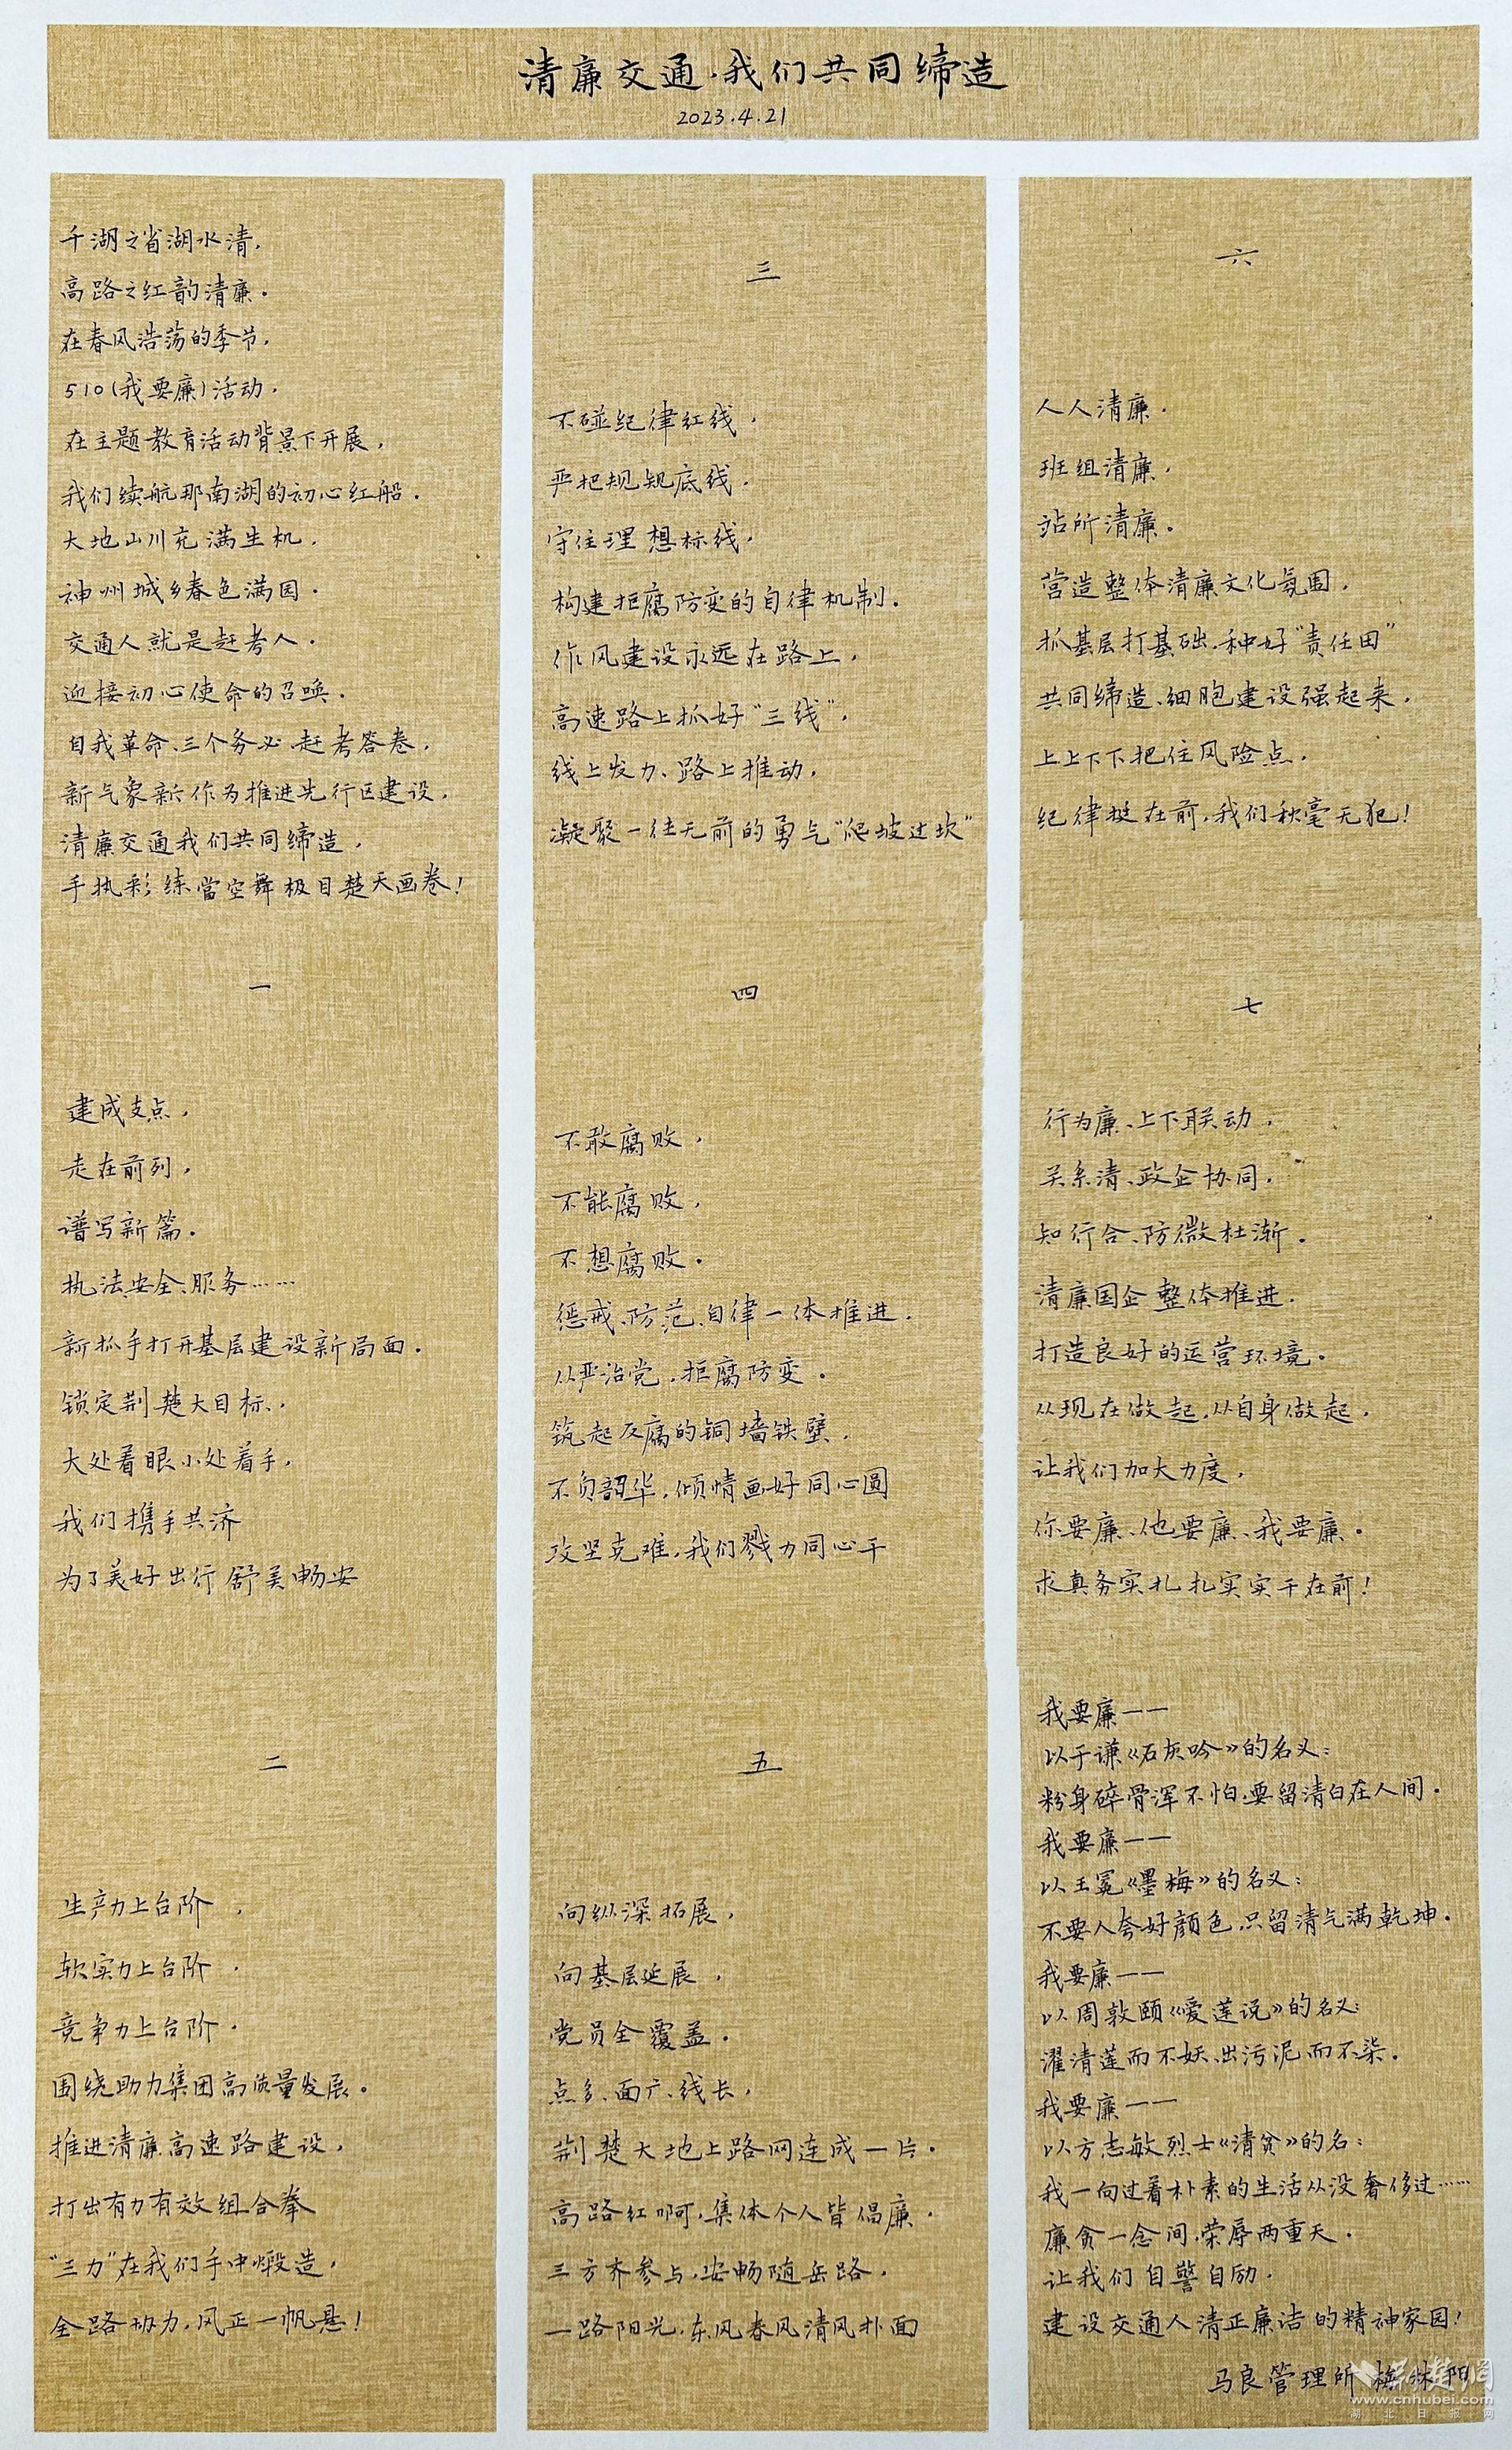 清廉交通·我们共同缔造
2023.4.21
千湖之省湖水清,
高路之红韵清廉.
在春风浩荡的季节,
510(我要廉)活动,
在主题教育活动背景下开展,
我们续航那南湖的初心红船.
大地山川充满生机,
神州城乡春色满园.
交通人就是赶考人.
迎接初心使命的召唤.
自我革命、三个务必、赶考答卷,
新气象新作为推进先行区建设,
清廉交通我们共同缔造,
手执彩练當空舞极目楚天画卷!
一
建成支点,
走在前列,
谱写新篇.
执法、安全、服务……
新抓手打开基层建设新局面.
锁定荆楚大目标,
大处着眼小处着手,
我们携手共济
为了美好出行 舒美畅安
二
生产力上台阶,
软实力上台阶.
竞争力上台阶.
围绕助力集团高质量发展.
推进清廉高速路建设,
打出有力有效组合拳
“三力”在我们手中煅造,
全路协力,风正一帆悬!
三
不碰纪律红线,
严把规矩底线.
守住理想标线,
构建拒腐防变的自律机制.
作风建设永远在路上,
高速路上抓好“三线”,
线上发力、路上推动,
凝聚一往无前的勇气“爬坡过坎”
四
不敢腐败,
不能腐败,
不想腐败.
惩戒、防范、自律一体推进.
从严治党,拒腐防变.
筑起反腐的铜墙铁壁,
不负韶华,倾情画好同心圆
攻坚克难,我们戮力同心干
五
向纵深拓展,
向基层延展,
党员全覆盖.
点多、面广、线长,
荆楚大地上路网连成一片.
高路红啊,集体个人皆倡廉.
三方齐参与,安畅随岳路,
一路阳光,东风春风清风扑面
六
人人清廉.
班组清廉,
站所清廉.
营造整体清廉文化氛围,
抓基层打基础,种好“责任田”
共同缔造、细胞建设强起来,
上上下下把住风险点,
纪律挺在前,我们秋毫无犯!
七
行为廉、上下联动,
关系清、政企协同,
知行合、防微杜渐.
清廉国企整体推进.
打造良好的运营环境.
从现在做起,从自身做起,
让我们加大力度,
你要廉、他要廉、我要廉.
求真务实扎扎实实干在前!
我要廉——
以于谦《石灰吟》的名义:
粉身碎骨浑不怕,要留清白在人间.
我要廉——
以王冕《墨梅》的名义:
不要人夸好颜色,只留清气满乾坤.
我要廉——
以周敦颐《爱莲说》的名义:
濯清莲而不妖、出污泥而不染.
我要廉——
以方志敏烈士《清贫》的名:
我一向过着朴素的生活从没奢侈过……
廉贪一念间,荣辱两重天.
让我们自警自励,
建设交通人清正廉洁的精神家园!
马良管理所 梅林阳
荆楚網
www.cnhubei.com
湖北日报网